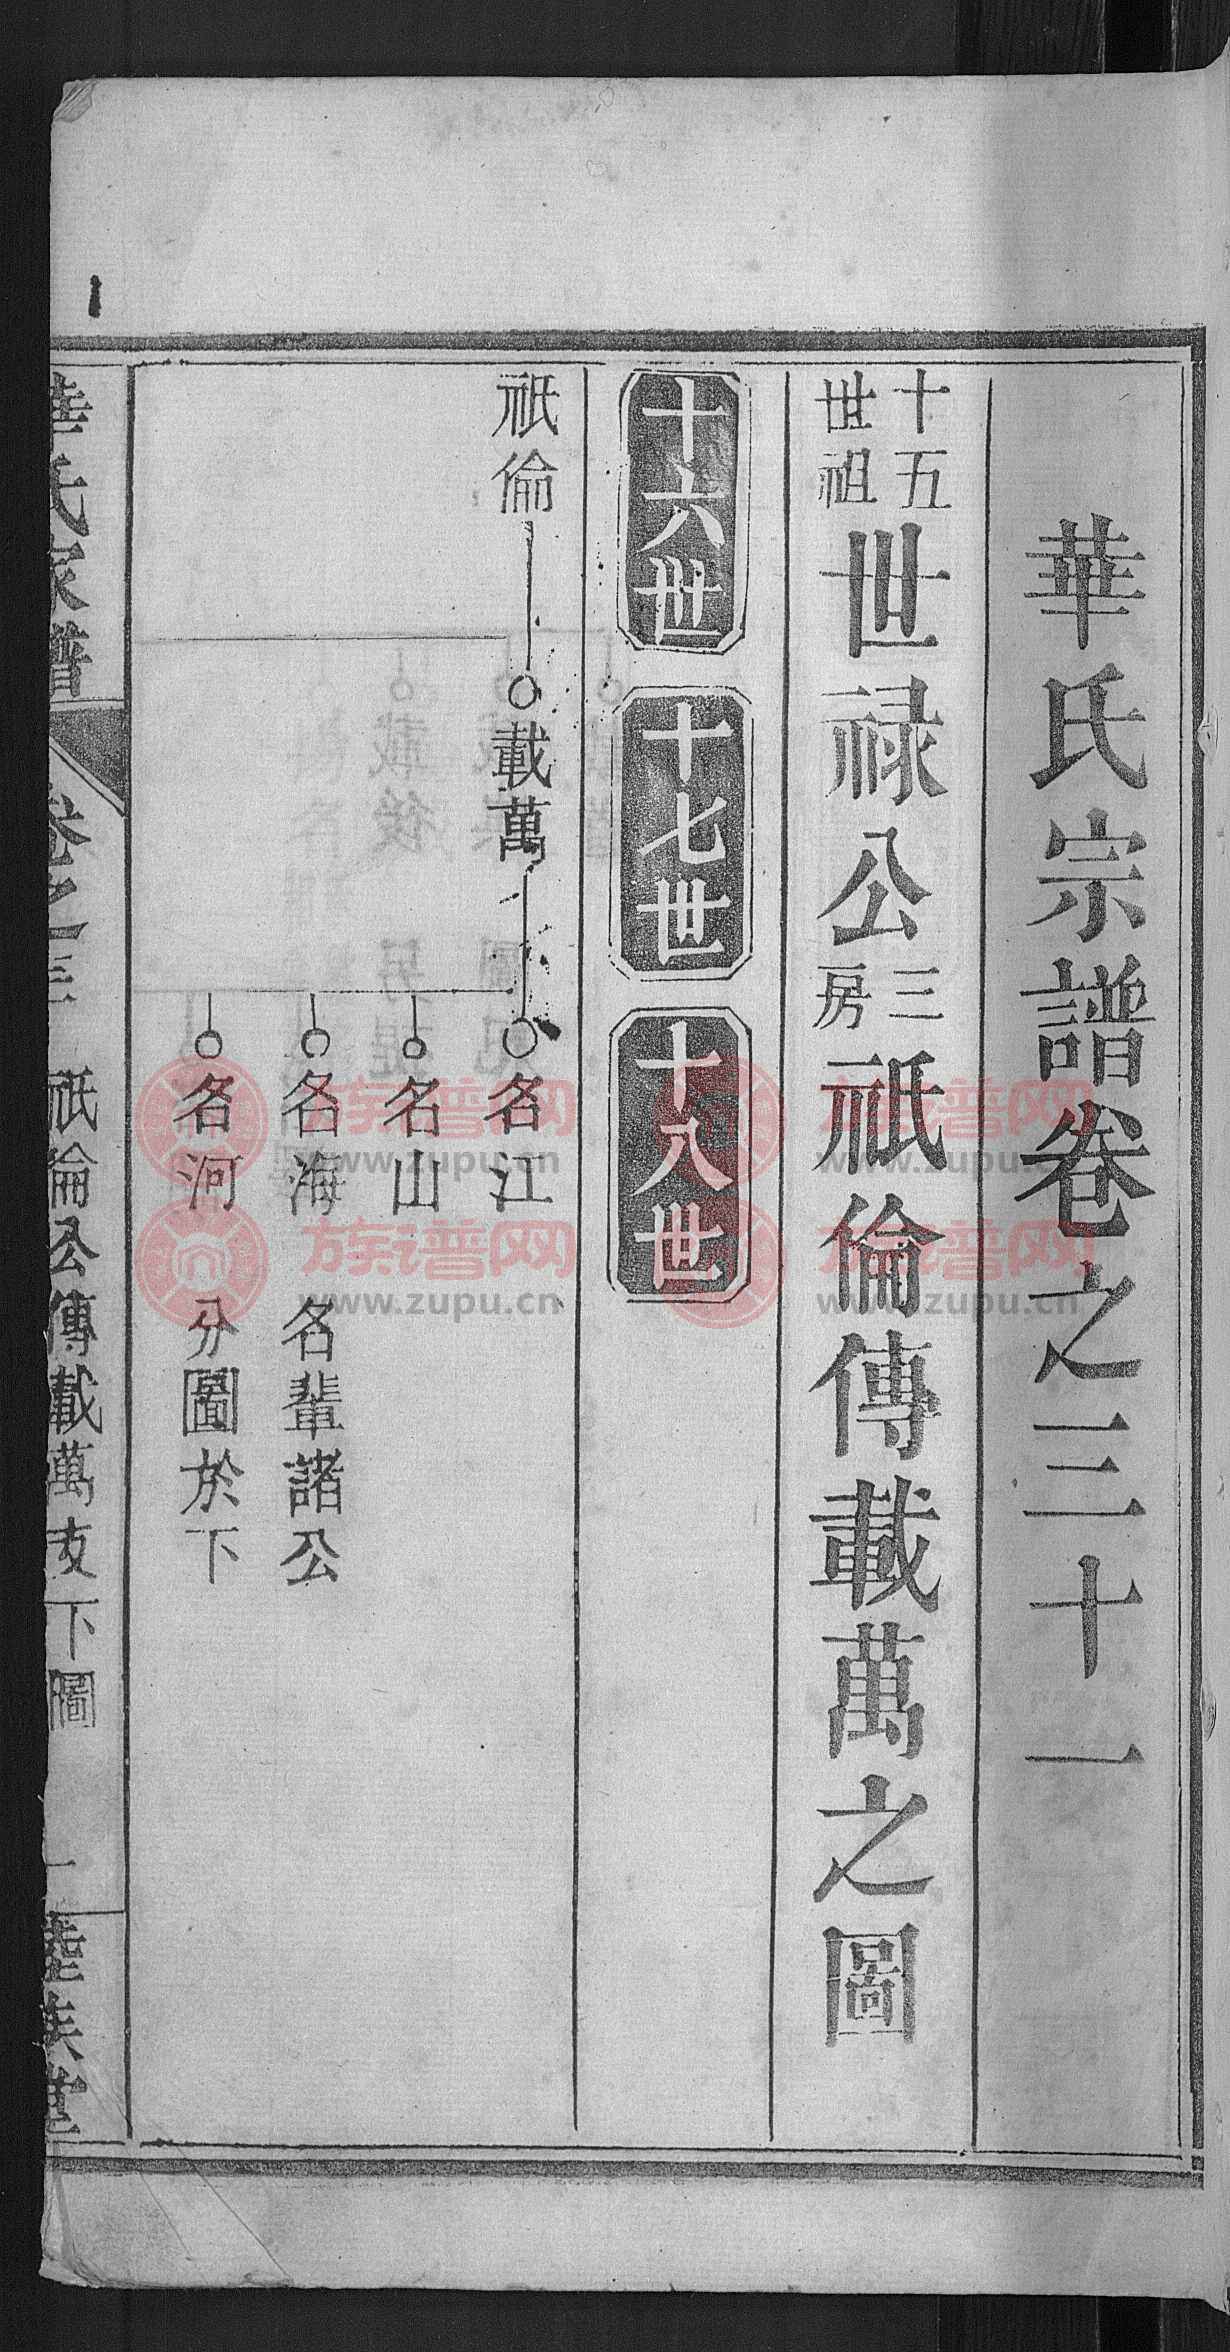 華氏宗譜卷之三十一
十五世祖世祿公三房祇倫傳載萬之圖
十六世 十七世 十八世
祇倫 載萬 名江
名山
名海 名輩諸公
名河 分圖於下
華氏家譜 卷之三 祇倫公傳載萬支下圖 一
族谱网
www.zupu.cn
族谱网
www.zupu.cn
族谱网
www.zupu.cn
族谱网
www.zupu.cn